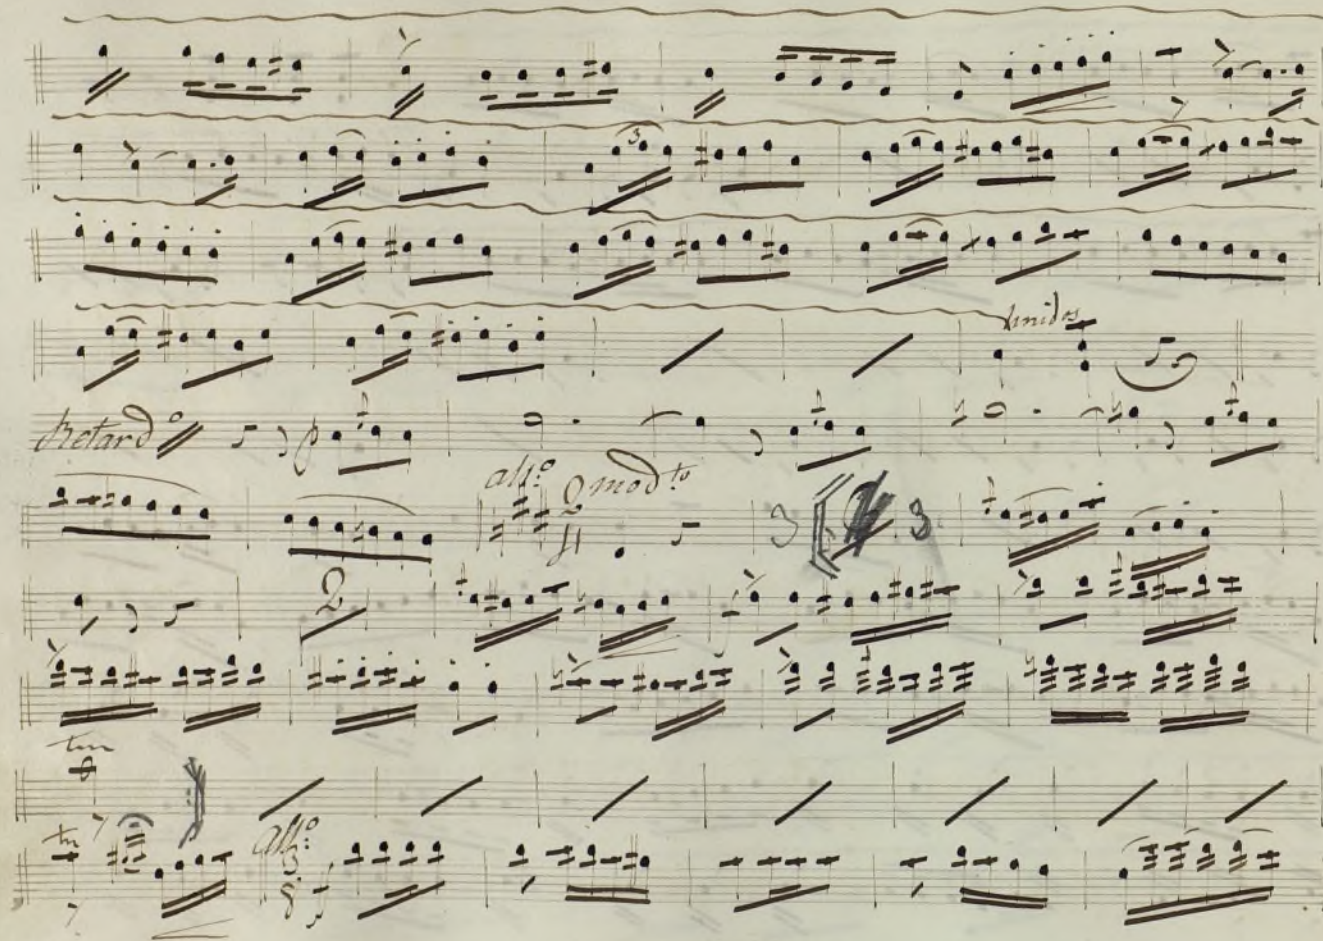 3
Unidos
Retardº
allº modto
2 4
3 3
f
2
f
tr
tr
Allº
3 8 f